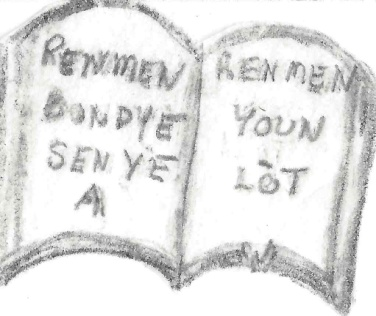 RENMEN
BONDYE
SENYE
A
RENMEN
YOUN
LÒT